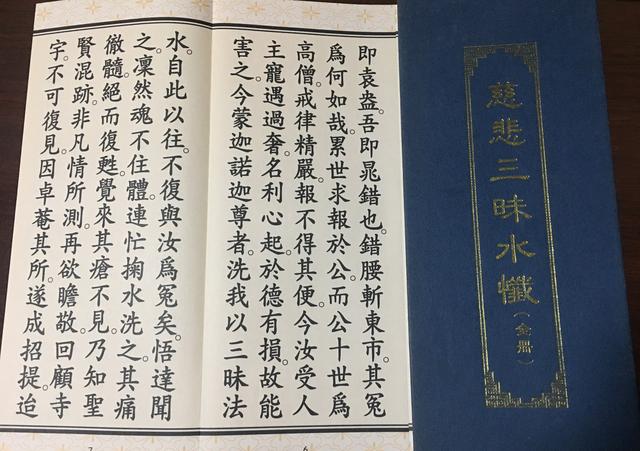 慈悲三昧水懺(全冊)
即袁盎。吾即晁錯也。錯腰斬東市。其冤
爲何如哉。累世求報於公。而公十世爲
高僧。戒律精嚴。報不得其便。今汝受人
主寵遇過奢。名利心起。於德有損。故能
害之。今蒙迦諾迦尊者。洗我以三昧法
6
水。自此以往。不復與汝爲冤矣。悟達聞
之。凜然魂不住體。連忙掬水洗之。其痛
徹髓。絕而復甦。覺來其瘡不見。乃知聖
賢混跡。非凡情所測。再欲瞻敬。回顧寺
宇。不可復見。因卓菴其所。遂成招提。迨
7